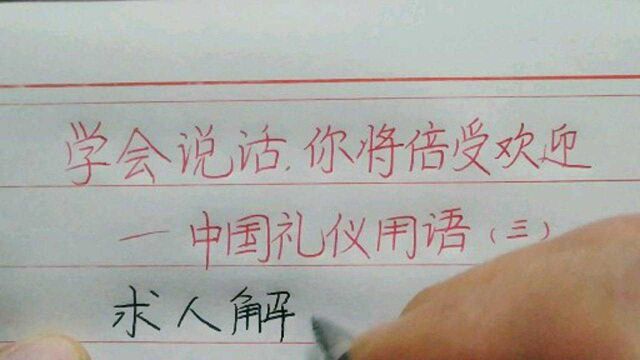 学会说话,你将倍受欢迎
—中国礼仪用语(三)
求人解